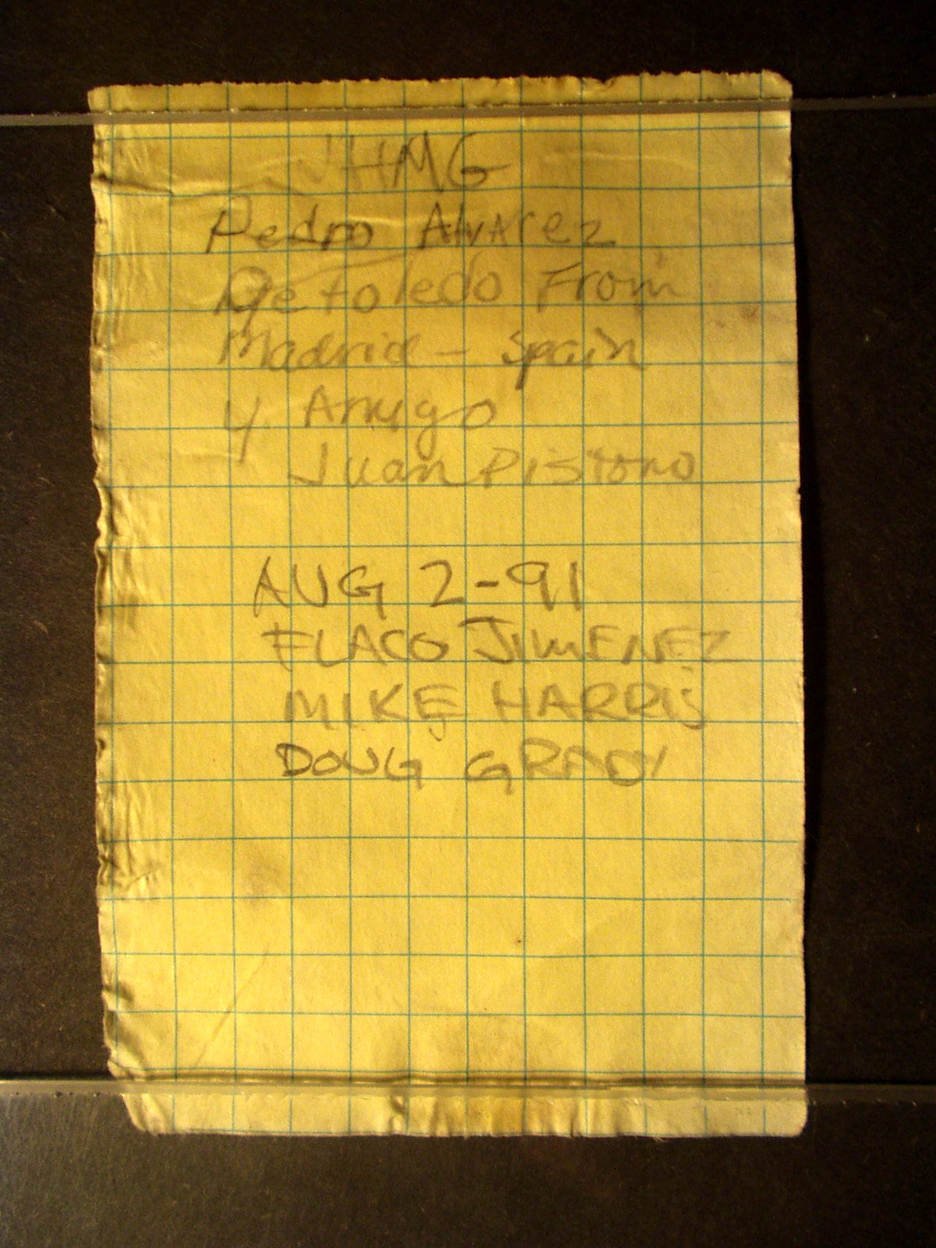 JHMG
Pedro Alvarez
De toledo From
Madrid - Spain
y Amigo
Juan Pistono
AUG 2-91
FLACO JIMENEZ
MIKE HARRIS
DOUG GRADY